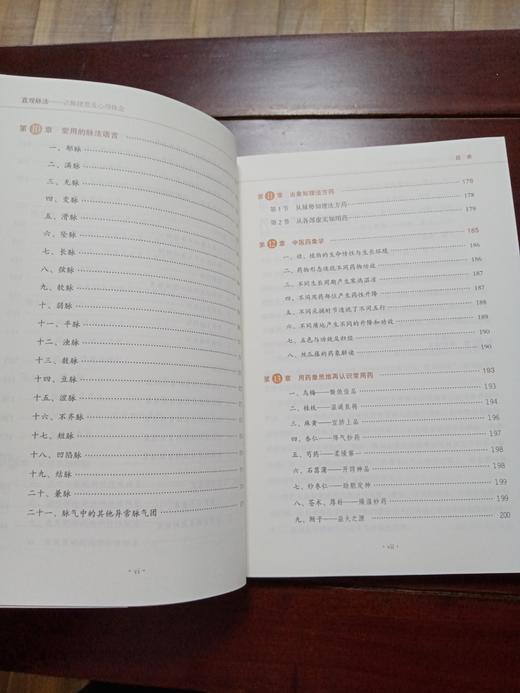 直观脉法——
第10章 常用的脉法语言
一、郁脉
二、满脉
三、无脉
四、变脉
五、滑脉
六、坠脉
七、长脉
八、弦脉
九、软脉
十、弱脉
十一、平脉
十二、浊脉
十三、鼓脉
十四、立脉
十五、涩脉
十六、不齐脉
十七、短脉
十八、凹陷脉
十九、结脉
二十、兼脉
二十一、脉气中的其他异常脉气团
· vi ·
目 录
第11章 由象知理法方药 178
第1节 从脉势知理法方药 178
第2节 从各部虚实知用药 179
第12章 中医药象学 185
一、动、植物的生命特性与生长环境 186
二、药物形态造就不同药物功效 186
三、不同生长周期产生寒热温凉 187
四、不同用药部位产生药性升降 188
五、不同采摘时节造就了不同五行 189
六、不同质地产生不同的升降和功效 190
七、五色与功效及归经 190
八、丝瓜藤的药象解读 190
第13章 用药象思维再认识常用药 193
一、乌梅——聚焦佳品 193
二、桂枝——温通良将 194
三、麻黄——宣肺上品 196
四、杏仁——降气妙药 197
五、芍药——柔缓 198
六、石菖蒲——开窍神品 198
七、炒枣仁——助眠定神 199
八、苍术、厚朴——燥湿妙药 199
九、附子——益火之源 200
· vii ·